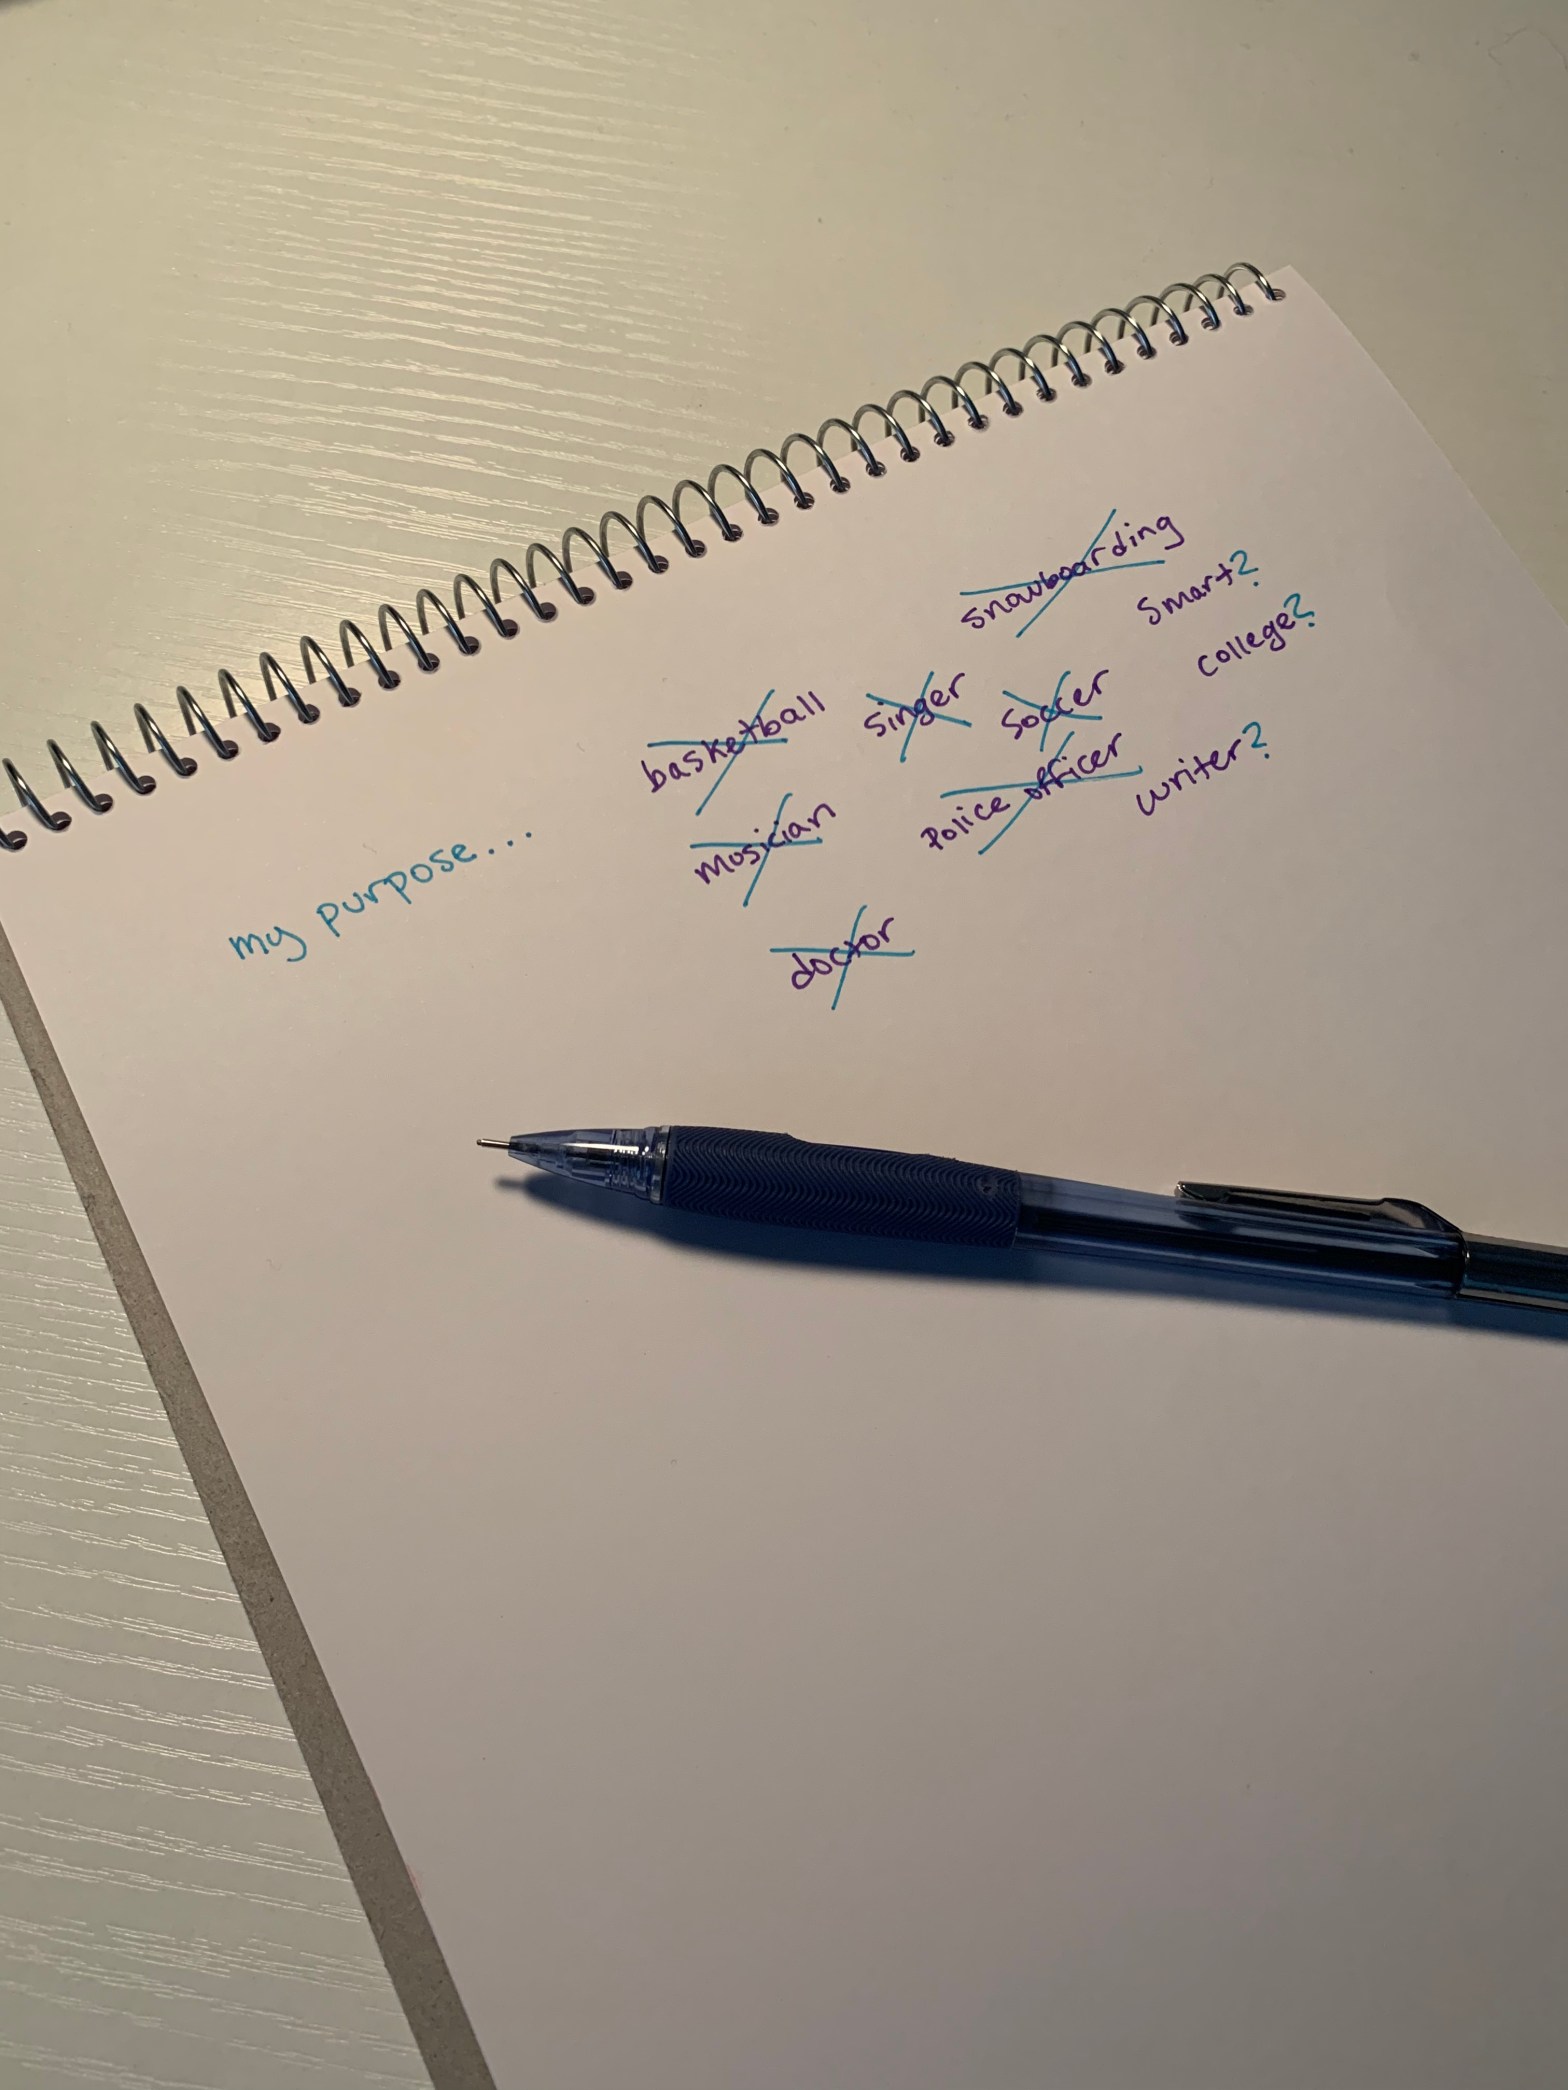 my purpose...
snowboarding
smart?
college?
basketball
singer
soccer
police officer
writer?
musician
doctor